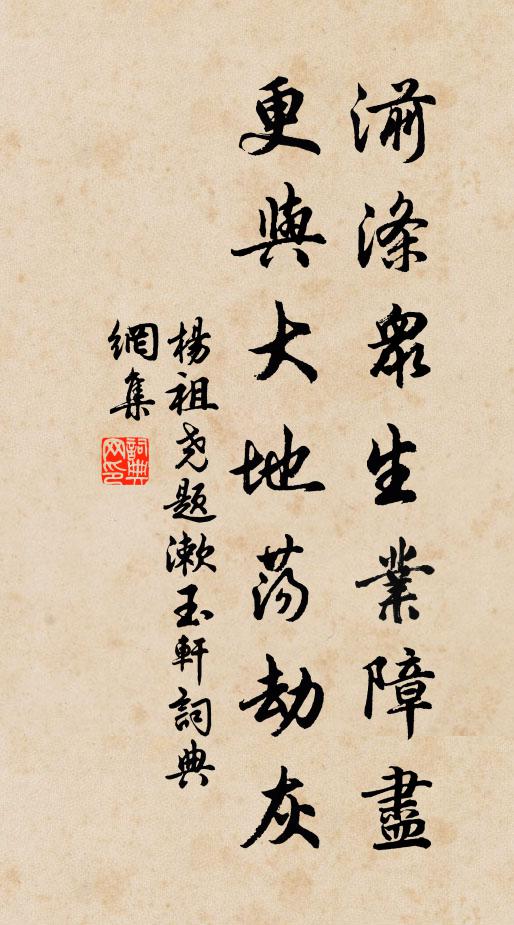 湔滌衆生業障盡
更與大地蕩劫灰
楊祖尧題漱玉軒詞典
網集
詞典
网印